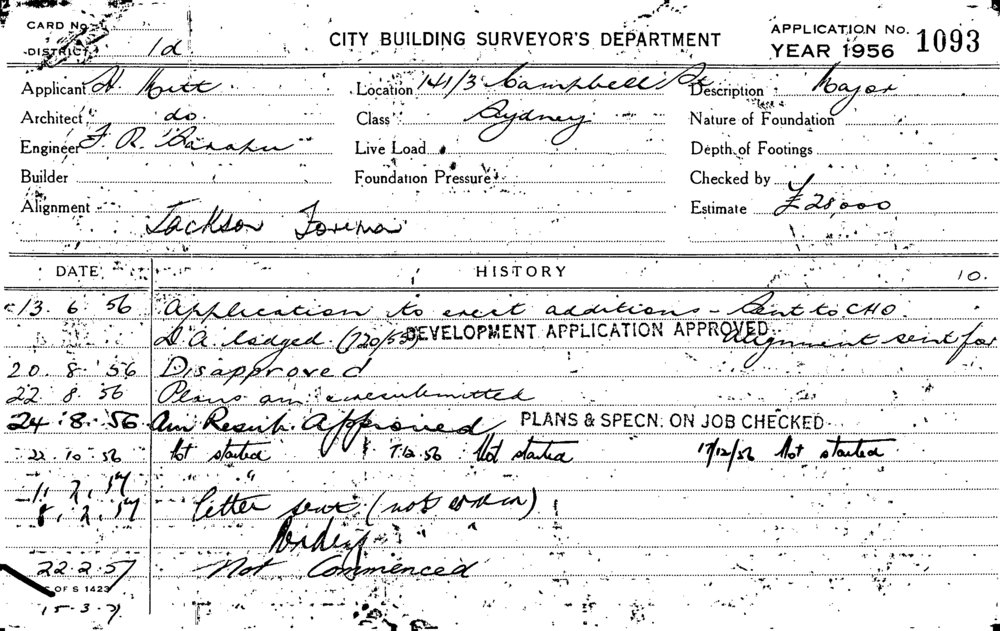 CARD No.
DISTRICT 1d
CITY BUILDING SURVEYOR'S DEPARTMENT
APPLICATION No. 1093
YEAR 1956
Applicant H
Location 141/3 Campbell St
Description Major
Architect do.
Class Sydney
Nature of Foundation
Engineer F. R.
Live Load
Depth of Footings
Builder
Foundation Pressure
Checked by
Alignment Jackson Foreman
Estimate £28,000
DATE HISTORY 10.
13. 6. 56 Application to erect additions - Sent to CHO.
D A lodged. (720/55) DEVELOPMENT APPLICATION APPROVED. Alignment sent for
20. 8. 56 Disapproved
22. 8. 56 Plans am & resubmitted
24. 8. 56 Am Resub. Approved PLANS & SPECN. ON JOB CHECKED
22. 10. 56 Not started 7.12.56 Not started 17/12/56 Not started
11. 2. 57 " "
8. 2. 57 letter sent (not)
Pending
22.2.57 Not Commenced
OF S 1423
15-3.